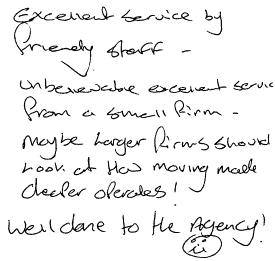 Excellent service by
friendly staff -
Unbelievable excellent servic
from a small firm -
Maybe larger firms should
look at how moving made
clearer operates!
Well done to the Agency!